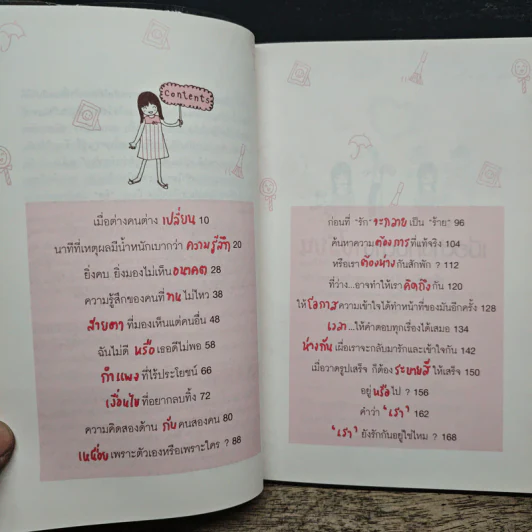 Contents
เมื่อต่างคนต่าง เปลี่ยน 10
นาทีที่เหตุผลมีน้ำหนักเบากว่า ความรู้สึก 20
ยิ่งคบ ยิ่งมองไม่เห็นอนาคต 28
ความรู้สึกของคนที่ ทน ไม่ไหว 38
สายตา ที่มองเห็นแต่คนอื่น 48
ฉันไม่ดี หรือ เธอดีไม่พอ 58
กำแพง ที่ไร้ประโยชน์ 66
เงื่อนไข ที่อยากลบทิ้ง 72
ความคิดสองด้าน กับ คนสองคน 80
เหนื่อย เพราะตัวเองหรือเพราะใคร ? 88
ก่อนที่ "รัก" จะกลาย เป็น "ร้าย" 96
ค้นหาความ ต้องการ ที่แท้จริง 104
หรือเรา ต้องห่าง กันสักพัก ? 112
ที่ว่าง...อาจทำให้เรา คิดถึง กัน 120
ให้ โอกาส ความเข้าใจ ได้ทำหน้าที่ของมันอีกครั้ง 128
เวลา ...ให้คำตอบทุกเรื่องได้เสมอ 134
ห่างกัน เผื่อเราจะกลับมารักและเข้าใจกัน 142
เมื่อวาดรูปเสร็จ ก็ต้อง ระบายสี ให้เสร็จ 150
อยู่ หรือ ไป ? 156
คำว่า "เรา" 162
"เรา" ยังรักกันอยู่ใช่ไหม ? 168